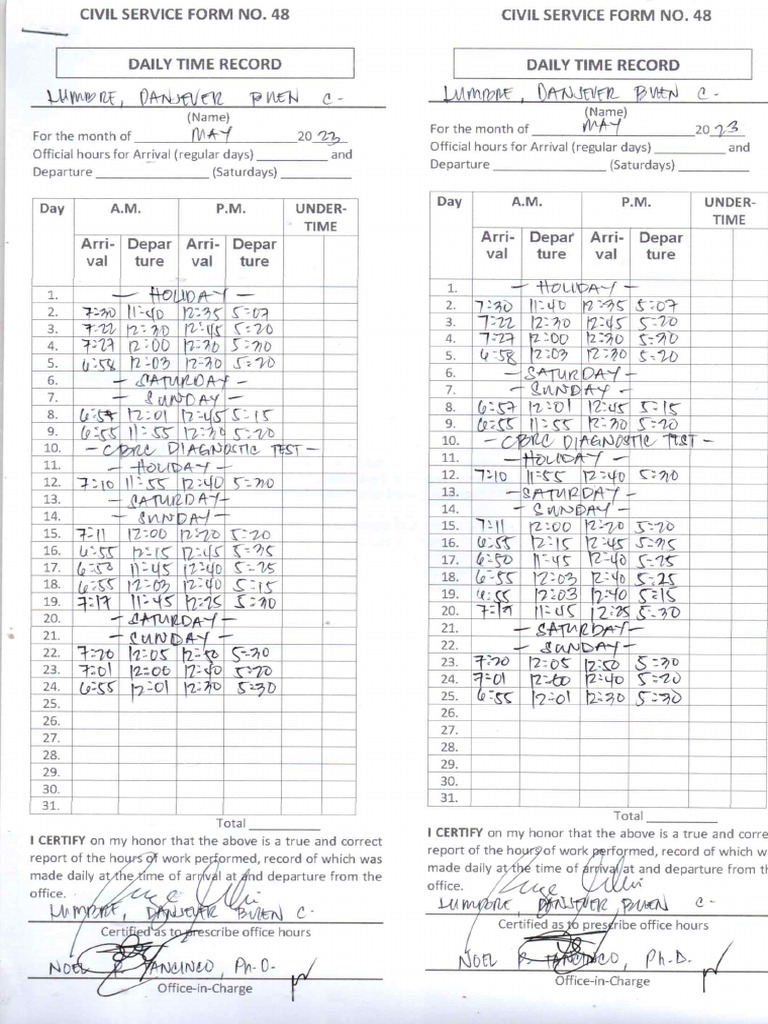 CIVIL SERVICE FORM NO. 48
DAILY TIME RECORD
LUMBRE, DANJEVER BUEN C.
(Name)
For the month of MAY 2023
Official hours for Arrival (regular days) and
Departure (Saturdays)
Day A.M. P.M. UNDER-TIME
Arri-val Depar ture Arri-val Depar ture
1. — HOLIDAY —
2. 7:30 11:40 12:35 5:07
3. 7:22 12:30 12:45 5:20
4. 7:27 12:00 12:30 5:30
5. 6:58 12:03 12:30 5:20
6. — SATURDAY —
7. — SUNDAY —
8. 6:57 12:01 12:45 5:15
9. 6:55 11:55 12:30 5:20
10. — CBRC DIAGNOSTIC TEST —
11. — HOLIDAY —
12. 7:10 11:55 12:40 5:30
13. — SATURDAY —
14. — SUNDAY —
15. 7:11 12:00 12:20 5:20
16. 6:55 12:15 12:45 5:35
17. 6:50 11:45 12:40 5:25
18. 6:55 12:03 12:40 5:15
19. 7:19 11:45 12:25 5:30
20. — SATURDAY —
21. — SUNDAY —
22. 7:20 12:05 12:50 5:30
23. 7:01 12:00 12:40 5:20
24. 6:55 12:01 12:30 5:30
25.
26.
27.
28.
29.
30.
31.
Total
I CERTIFY on my honor that the above is a true and correct
report of the hours of work performed, record of which was
made daily at the time of arrival at and departure from the
office.
LUMBRE, DANJEVER BUEN C.
Certified as to prescribe office hours
NOEL P. TANCINCO, Ph.D.
Office-in-Charge
CIVIL SERVICE FORM NO. 48
DAILY TIME RECORD
LUMBRE, DANJEVER BUEN C.
(Name)
For the month of MAY 2023
Official hours for Arrival (regular days) and
Departure (Saturdays)
Day A.M. P.M. UNDER-TIME
Arri-val Depar ture Arri-val Depar ture
1. — HOLIDAY —
2. 7:30 11:40 12:35 5:07
3. 7:22 12:30 12:45 5:20
4. 7:27 12:00 12:30 5:30
5. 6:58 12:03 12:30 5:20
6. — SATURDAY —
7. — SUNDAY —
8. 6:57 12:01 12:45 5:15
9. 6:55 11:55 12:30 5:20
10. — CBRC DIAGNOSTIC TEST —
11. — HOLIDAY —
12. 7:10 11:55 12:40 5:30
13. — SATURDAY —
14. — SUNDAY —
15. 7:11 12:00 12:20 5:20
16. 6:55 12:15 12:45 5:35
17. 6:50 11:45 12:40 5:25
18. 6:55 12:03 12:40 5:25
19. 6:55 12:03 12:40 5:15
20. 7:19 11:45 12:25 5:30
21. — SATURDAY —
22. — SUNDAY —
23. 7:20 12:05 12:50 5:30
24. 7:01 12:00 12:40 5:20
25. 6:55 12:01 12:30 5:30
26.
27.
28.
29.
30.
31.
Total
I CERTIFY on my honor that the above is a true and corre
report of the hours of work performed, record of which w
made daily at the time of arrival at and departure from th
office.
LUMBRE, DANJEVER BUEN C.
Certified as to prescribe office hours
NOEL P. TANCINCO, Ph.D.
Office-in-Charge